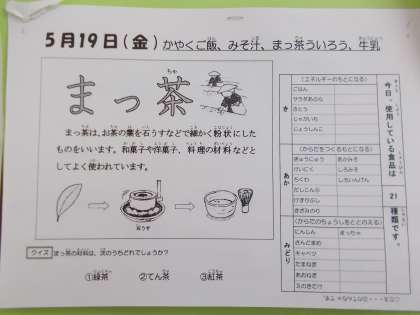 5月19日(金) かやくご飯、みそ汁、まっ茶ういろう、牛乳
まっ茶
まっ茶は、お茶の葉を石うすなどで細かく粉状にした
ものをいいます。和菓子や洋菓子、料理の材料などと
してよく使われています。
石うす
クイズ まっ茶の材料は、次のうちどれでしょうか?
①緑茶 ②てん茶 ③紅茶
今日、使用している食品は 21 種類です。
き
(エネルギーのもとになる)
ごはん
サラダあぶら
さとう
じゃがいも
あか
(からだをつくるもとになる)
ぎゅうにゅう あかみそ
けいにく しろみそ
ちくわ
だしこんぶ
けずりぶし
きざみのり
みどり
(からだのちょうしをととのえる)
にんじん まっちゃ
さんどまめ
キャベツ
たまねぎ
あおねぎ